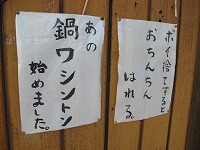 ポイ捨てすると
おちんちん
はれる。
あの
鍋ワシントン
始めました。